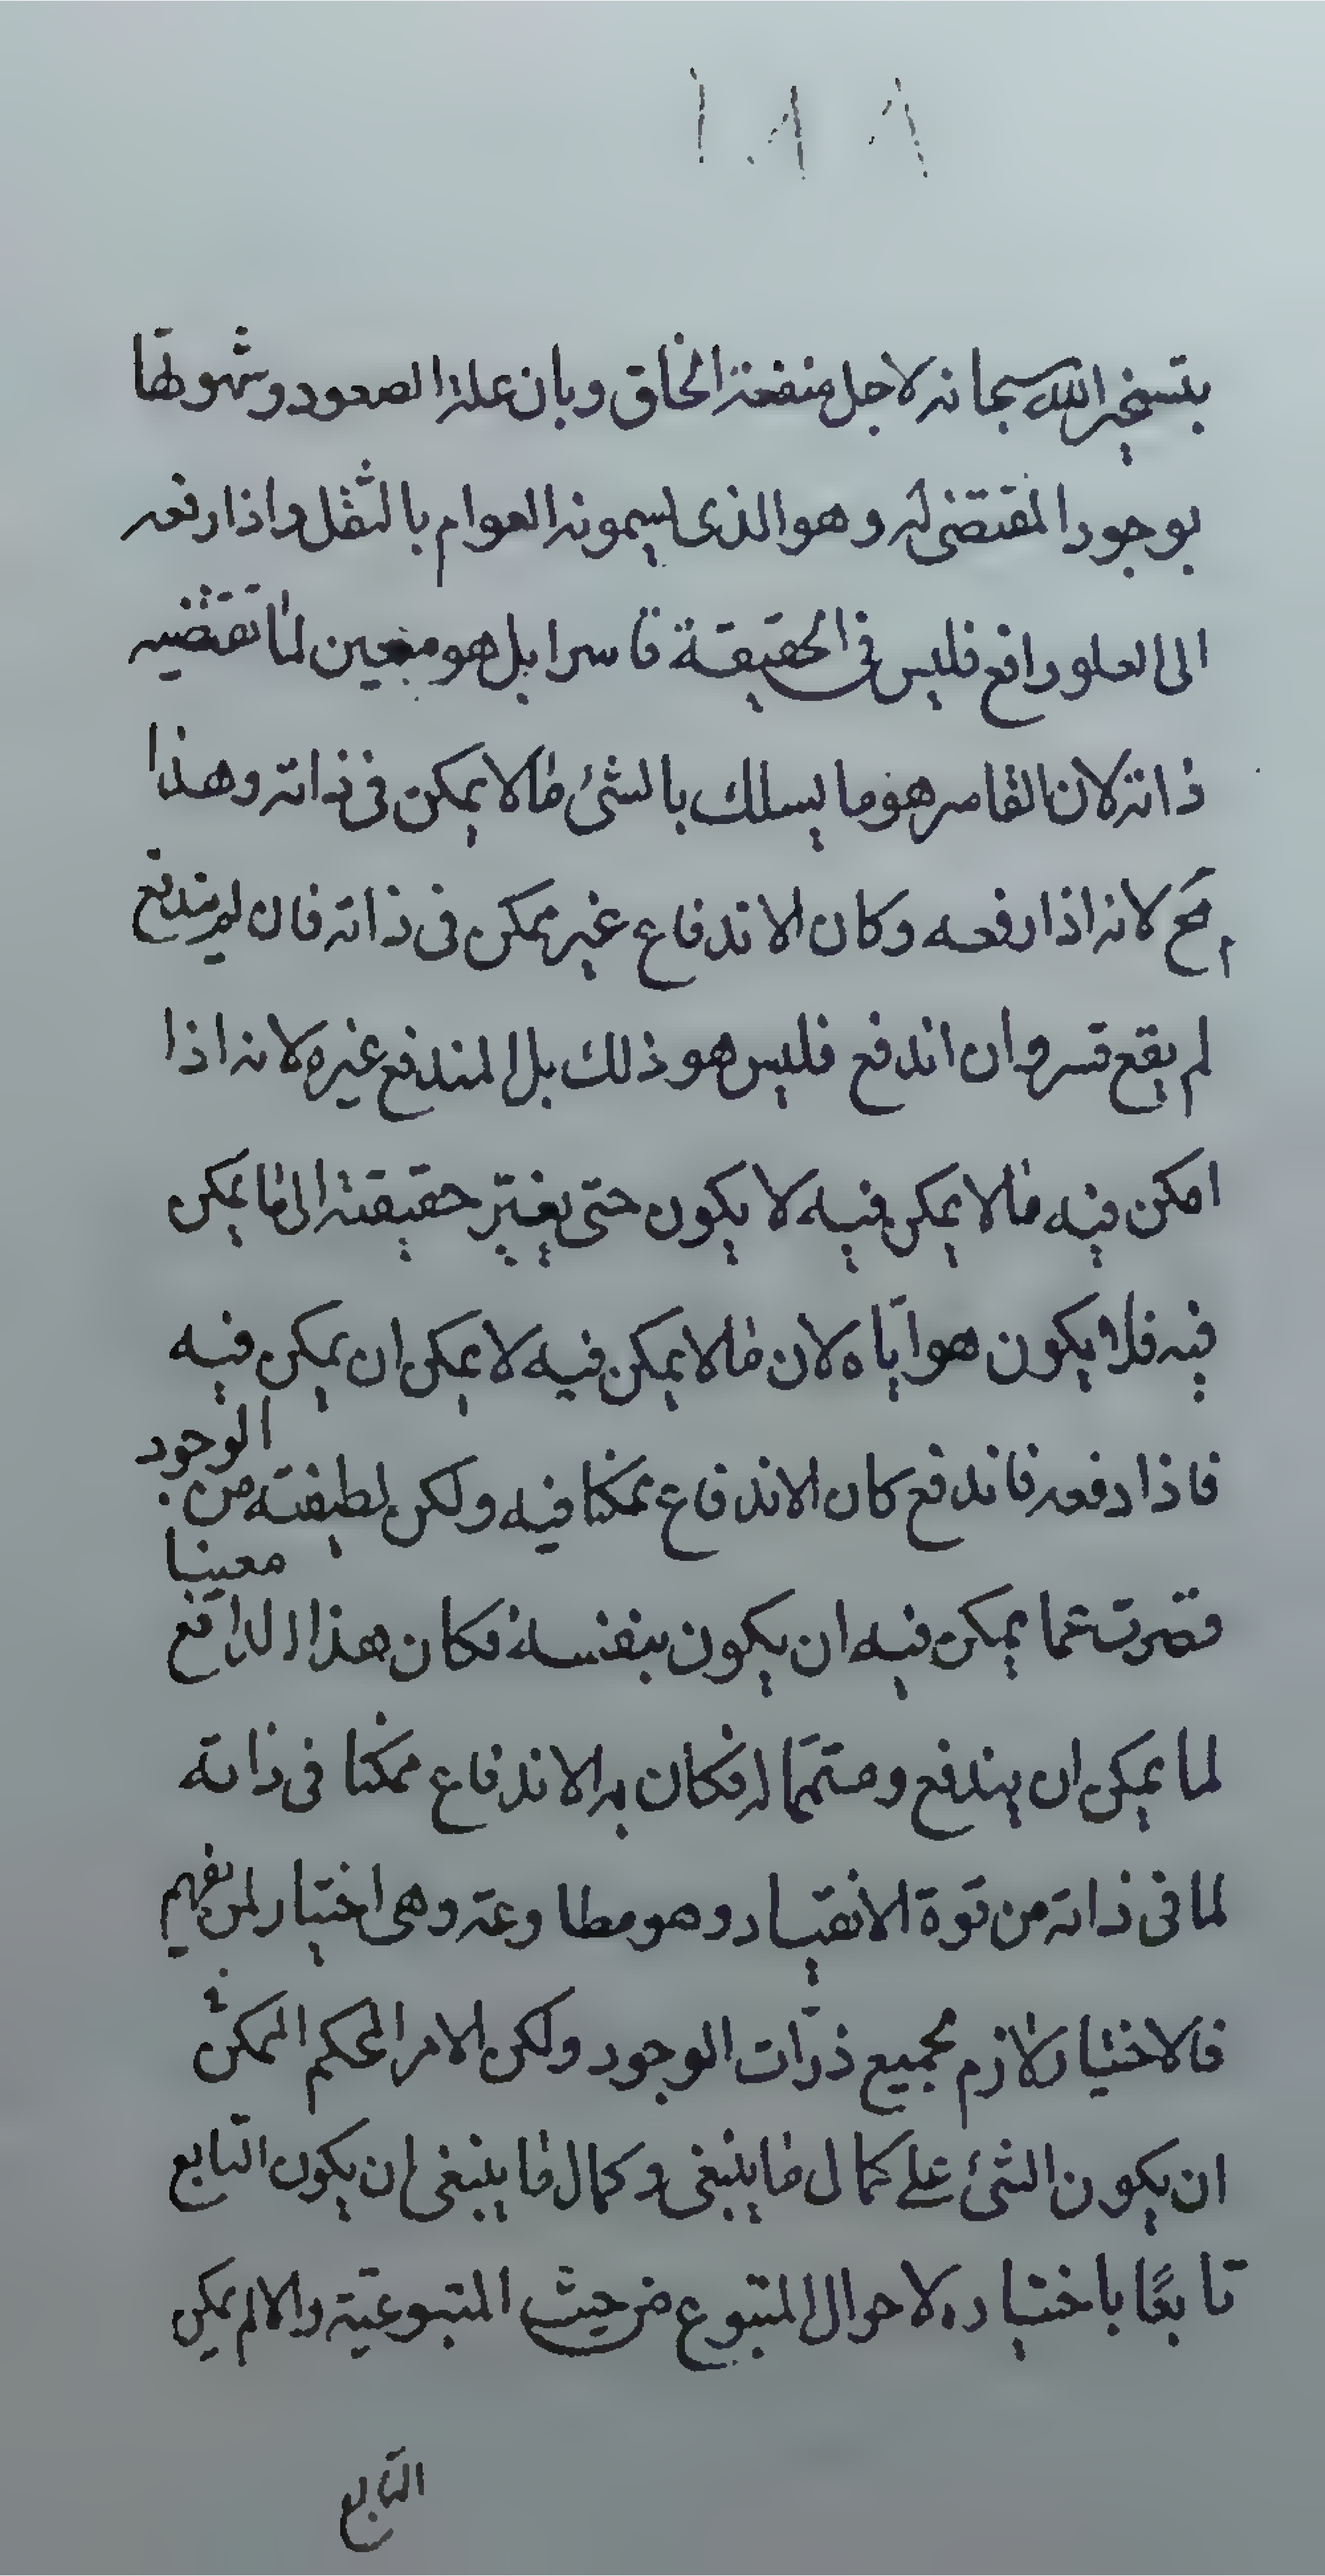 ١٨٨
بتسخير الله سبحانه لاجل منفعة الخلق وبان علة الصعود وشهوتها
بوجود المقتضى له وهو الذى يسمونه العوام بالثقل واذا رفعه
الى العلو رافع فليس فى الحقيقة قاسرا بل هو معين لما تقتضيه
ذاته لان القاسر هو ما يسلك بالشئ ما لا يمكن فى ذاته وهذا
مح لانه اذا رفعه وكان الاندفاع غير ممكن فى ذاته فان لم يندفع
لم يقع قسر وان اندفع فليس هو ذلك بل المندفع غيره لانه اذا
امكن فيه ما لا يمكن فيه لا يكون حتى يغيّر حقيقته الى ما يمكن
فيه فلا يكون هو ايّاه لان ما لا يمكن فيه لا يمكن ان يمكن فيه
فاذا دفعه فاندفع كان الاندفاع ممكنا فيه ولكن لطيفته من الوجود
قصرت عما يمكن فيه ان يكون بنفسه فكان هذا الدافع معينا
لما يمكن ان يندفع ومتمّما له فكان به الاندفاع ممكنا فى ذاته
لما فى ذاته من قوة الانقياد وهو مطاوعة وهى اختيار لمن يفهم
فالاختيار لازم لجميع ذرّات الوجود ولكن الامر المحكم الممكن
ان يكون الشئ على كمال ما ينبغى وكمال ما ينبغى ان يكون التابع
تابعًا باختياره لاحوال المتبوع من حيث المتبوعيّة والا لم يكن
التابع